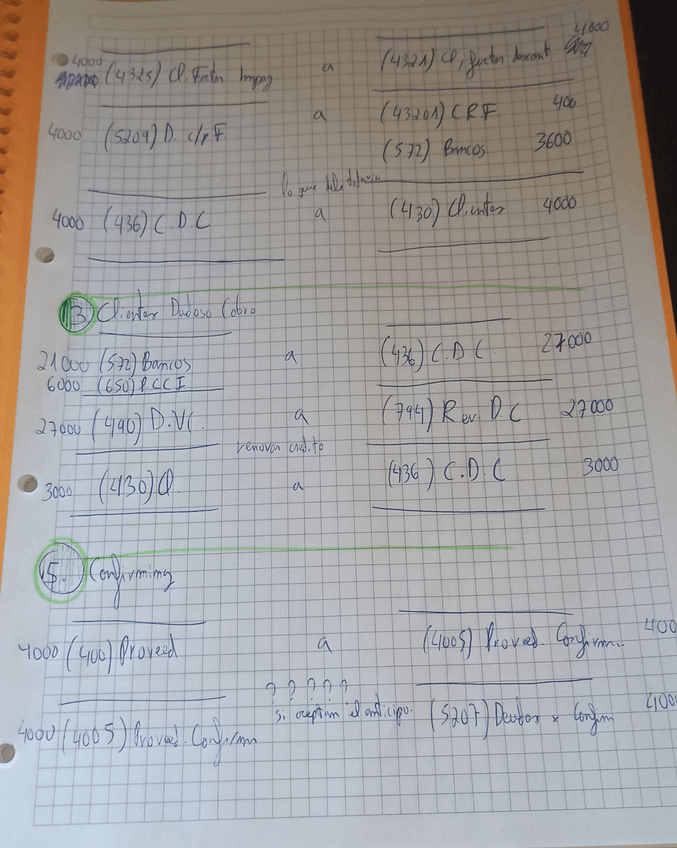 4000
4000 (4325) Cl. Factor Impag a (4321) Cl, factor descont
4000 (5209) D. c/r F a (43201) CRF 400
(572) Bancos 3600
lo que
4000 (436) C.D.C a (430) Clientes 4000
13 Clientes Dudoso Cobro
21000 (572) Bancos a (436) C.D.C. 27000
6000 (650) PCCI
27000 (490) D.VC. a (794) Rev. D C 27000
renovar crédito
3000 (430) Cl. a (436) C.D.C 3000
15. Confirming
4000 (400) Proveed a (4005) Proveed. Confirm.. 400
? ? ? ? ?
4000 (4005) Proveed. Confirmin si aceptan el anticipo. (5207) Deudas x Confirm 400